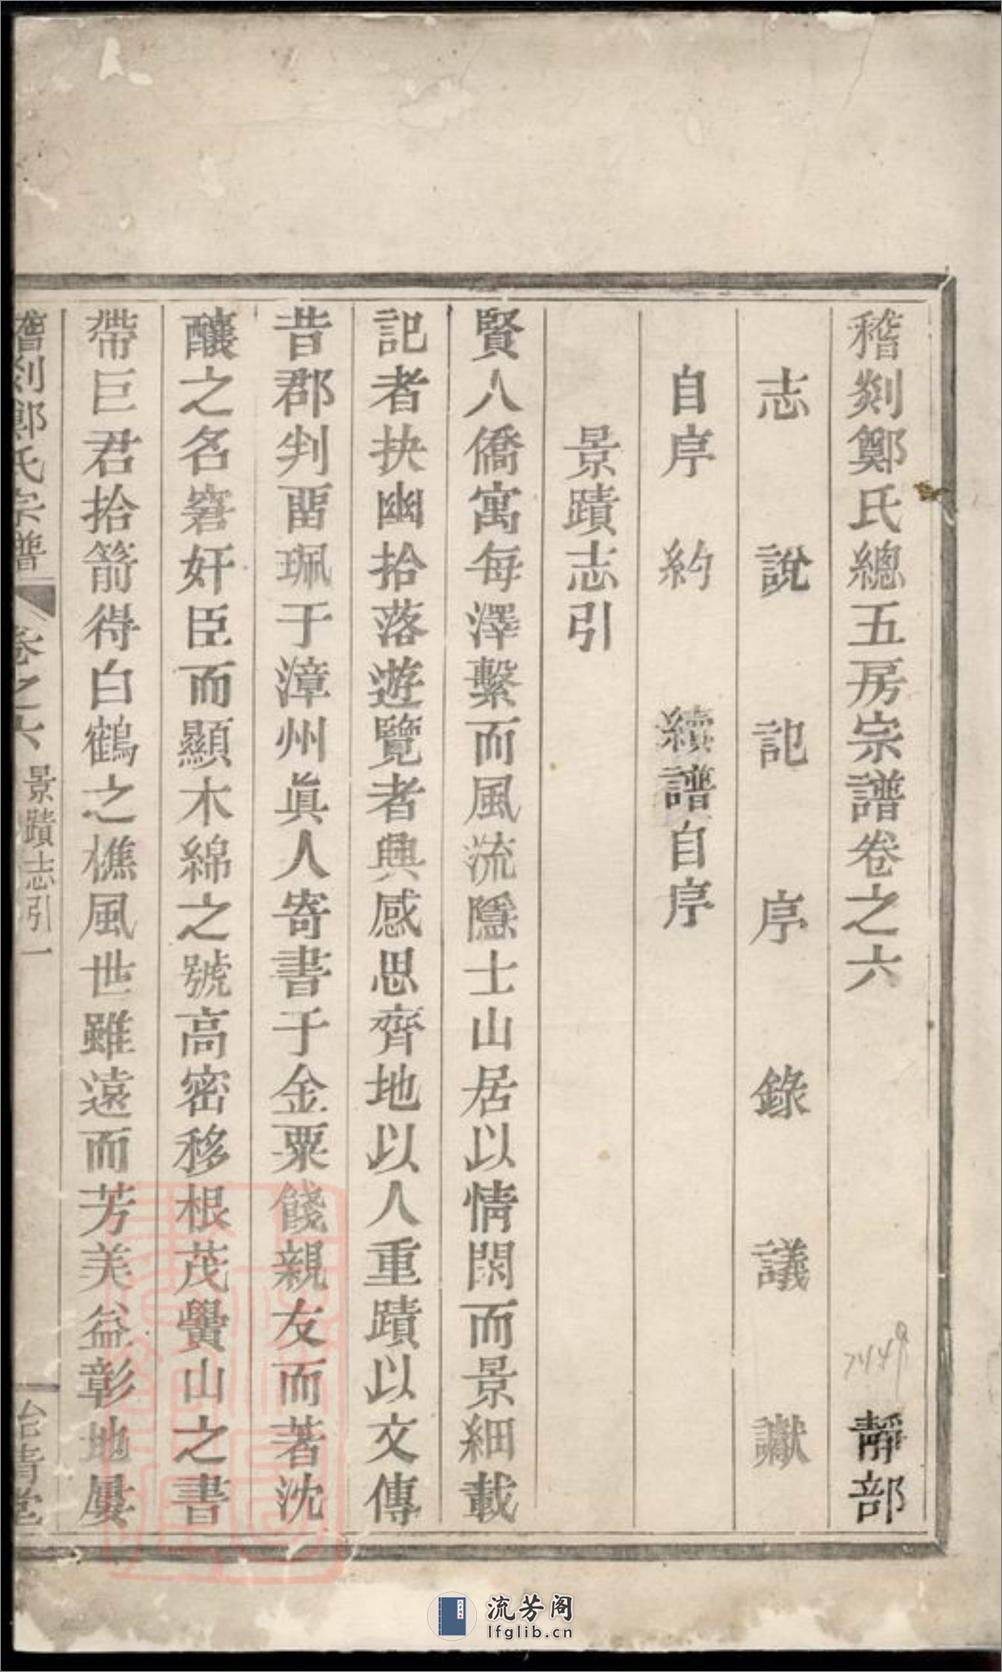 稽剡鄭氏總五房宗譜卷之六 靜部
志 說 記 序 錄 議 讞
自序 約 續譜自序
景蹟志引
賢人僑寓每澤繫而風流隱士山居以情閑而景細載
記者抉幽拾落遊覽者興感思齊地以人重蹟以文傳
昔郡判畱珮于漳州眞人寄書于金粟餞親友而著沈
釀之名窘奸臣而顯木綿之號高密移根茂黌山之書
帶巨君拾箭得白鶴之樵風世雖遠而芳美益彰地屢
稽剡鄭氏宗譜 卷之六 景蹟志引一
7449
流芳阁
lfglib.cn